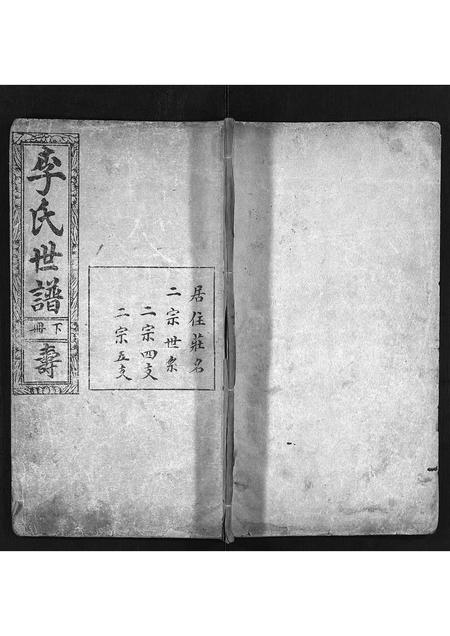 李氏世譜
下冊
壽
居住莊名
二宗世系
二宗四支
二宗五支